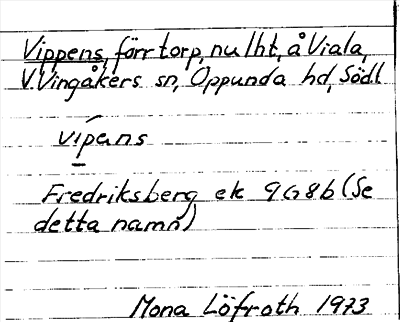 Vippens, förr torp, nu lht, å Viala,
V. Vingåkers sn, Oppunda hd, Södl
vípans
Fredriksberg ek 9G8b (Se
detta namn)
Mona Löfroth 1973